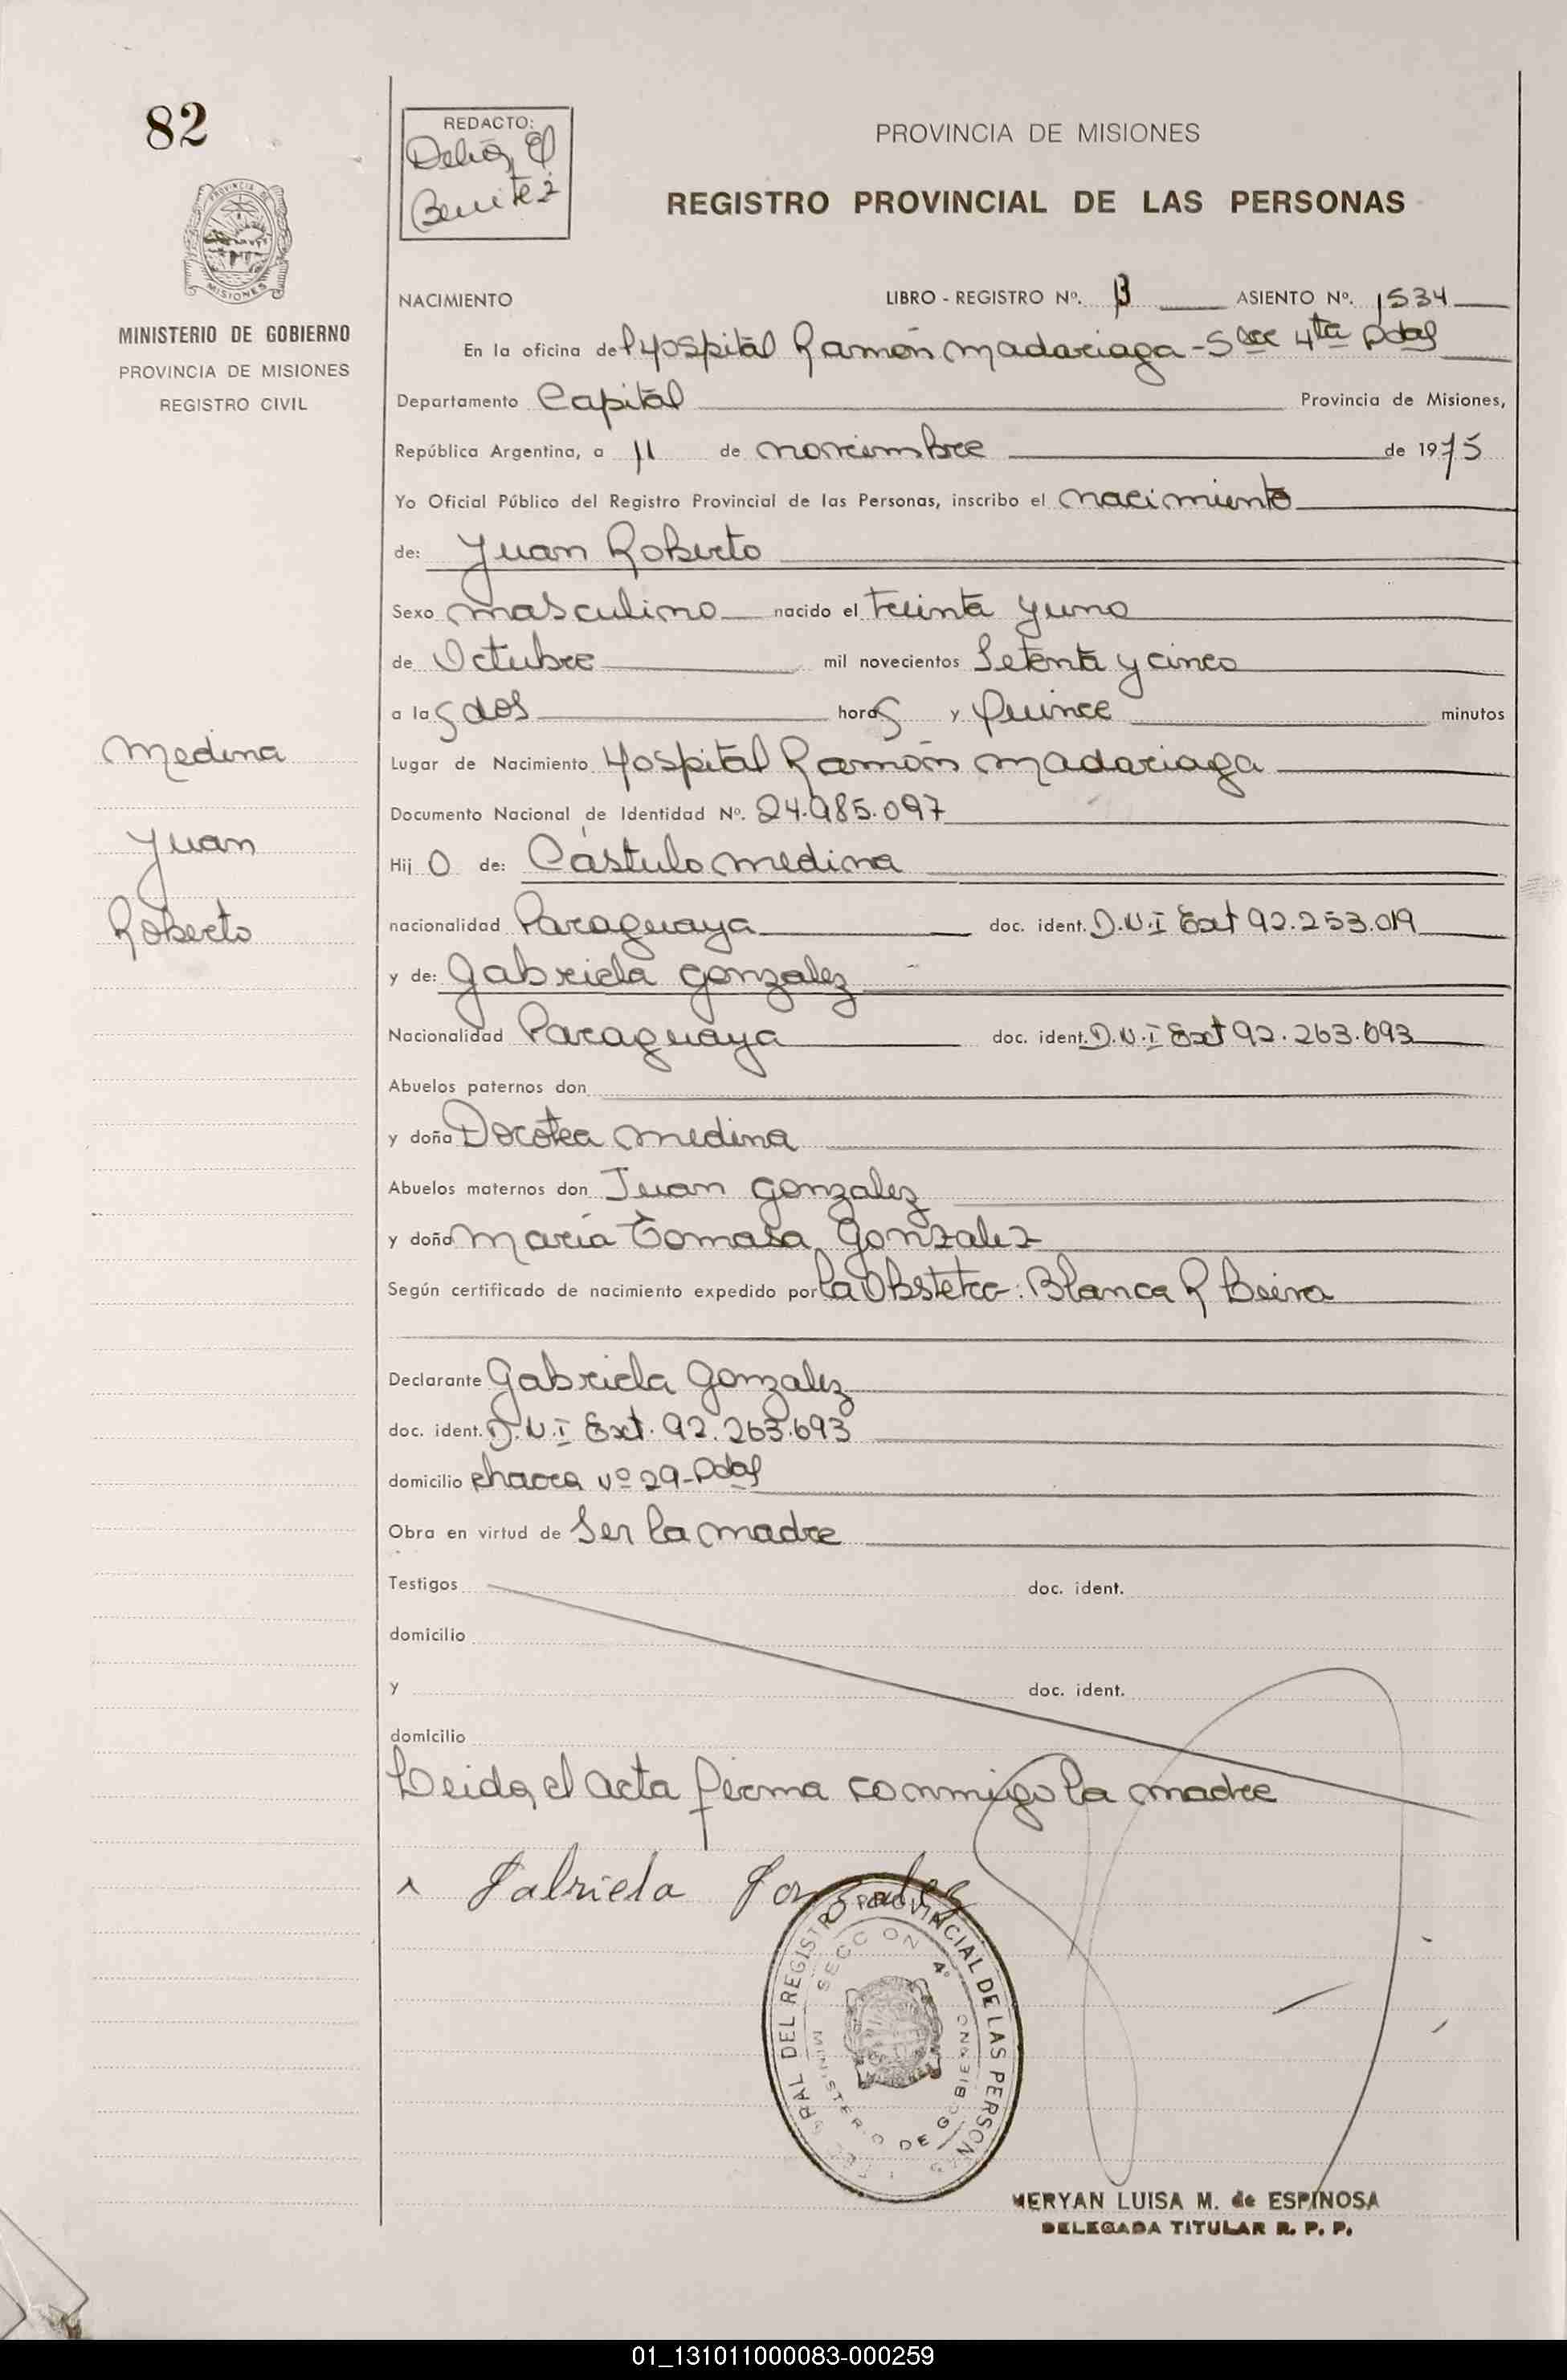 82
REDACTO:
Benitez
PROVINCIA DE MISIONES
REGISTRO PROVINCIAL DE LAS PERSONAS
PROVINCIA DE
MISIONES
MINISTERIO DE GOBIERNO
PROVINCIA DE MISIONES
REGISTRO CIVIL
NACIMIENTO LIBRO - REGISTRO Nº. ASIENTO Nº. 1534
En la oficina del Hospital Ramón Madariaga - Secc 4ta Pdas
Departamento Capital Provincia de Misiones,
República Argentina, a 11 de noviembre de 1975
Yo Oficial Público del Registro Provincial de las Personas, inscribo el nacimiento
de: Juan Roberto
Sexo masculino nacido el treinta y uno
de Octubre mil novecientos Setenta y cinco
a las dos horas y Quince minutos
Medina
Juan
Roberto
Lugar de Nacimiento Hospital Ramón Madariaga
Documento Nacional de Identidad Nº. 24.985.097
Hij o de: Cástulo Medina
nacionalidad Paraguaya doc. ident. D.N.I Ext 92.253.019
y de: Gabriela Gonzalez
Nacionalidad Paraguaya doc. ident. D.N.I Ext 92.263.693
Abuelos paternos don
y doña Dorotea Medina
Abuelos maternos don Juan Gonzalez
y doña María Tomasa Gonzalez
Según certificado de nacimiento expedido por la Obstetra: Blanca R
Declarante Gabriela Gonzalez
doc. ident. D.N.I Ext. 92.263.693
domicilio chacra Nº 29-Pdas
Obra en virtud de Ser la madre
Testigos doc. ident.
domicilio
y doc. ident.
domicilio
Leida el acta firma conmigo la madre
Gabriela Gonzalez
RAL DEL REGISTRO PROVINCIAL DE LAS PERSONAS
SECCION 4º
MINISTERIO DE GOBIERNO
MERYAN LUISA M. de ESPINOSA
DELEGADA TITULAR R. P. P.
01_131011000083-000259